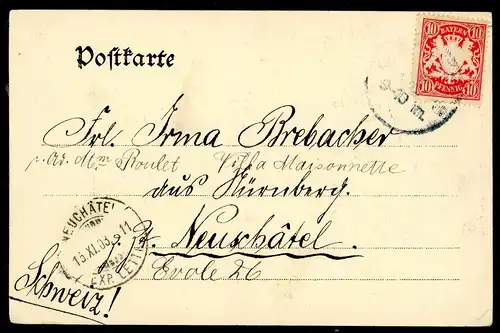 Postkarte
BAYERN
10 10
PFENNIG
10 10
9-10 Vm.
Frl. Irma Brebacher
p. Ad. Mme Roulet Villa Maisonnette
aus Nürnberg.
Neuschâtel.
Evole 26
Schweiz!
NEUCHÂTEL
13.XI.03.
11
EXP. LETTR.